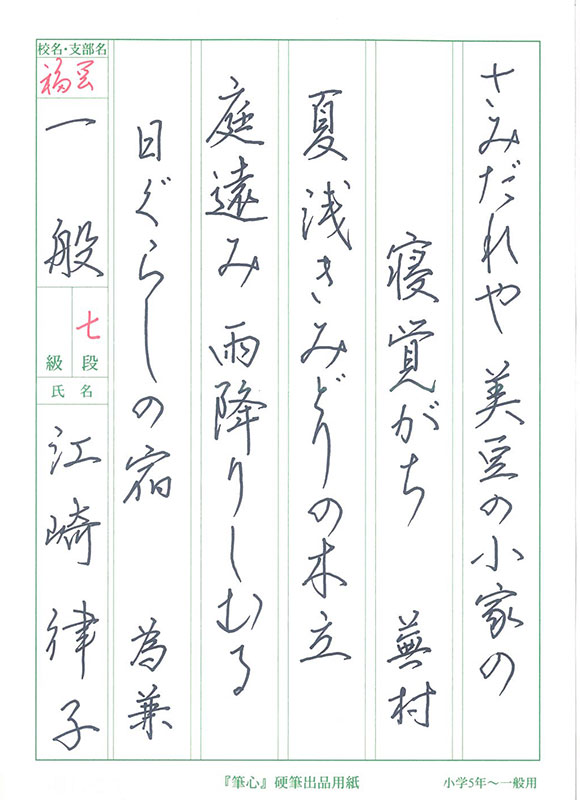 さみだれや 美豆の小家の
寝覚がち 蕪村
夏浅きみどりの木立
庭遠み 雨降りしむる
日ぐらしの宿 為兼
校名・支部名
福岡
一般
七段
級
氏名
江崎律子
『筆心』硬筆出品用紙
小学5年〜一般用